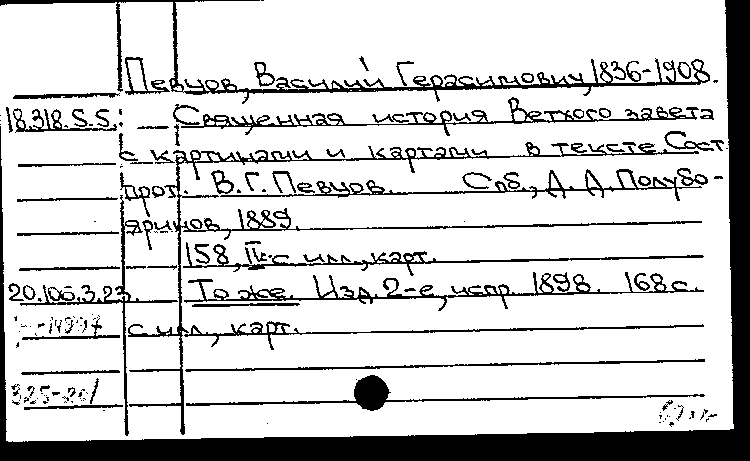 Певцов, Василий Герасимович, 1836-1908.
18.318.5.5. Священная история Ветхого завета
с картинами и картами в тексте. Сост.
прот. В.Г. Певцов. Спб., Д. Д. Полубо-
яринов, 1889.
158, IV с. илл., карт.
20.106.3.23. То же. Изд. 2-е, испр. 1898. 168 с.
с илл., карт.